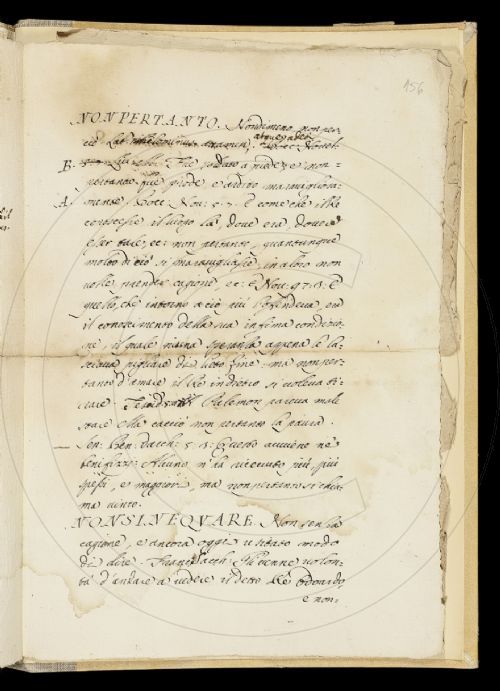 156
NON PERTANTO. Nondimeno, non per-
ciò Lat.
B.
pertanto più prode e ardito maravigliosa-
A. mente, Bocc: Nov: 5. 7. E come che il Re
conoscesse il luogo là, dove era, dover
esser tale, ec: non pertanto, quantunque
molto di ciò si maravigliasse, in altro non
volle prender cagione, ec: E Nov. 97. 8. E
quello, che intorno a ciò più l'offendeva, era
il conoscimento della sua infima condizio-
ne, il quale niuna speranza appena le la-
sciava pigliare di lieto fine: ma non per-
tanto d'amare il Re indietro si voleva ti-
rare. Palemon pareva male
stare Ma cacciò non pertanto la paura.
Sen: Ben: Varch: 5. Questo avviene ne'
benifizzi: Alcuno n'ha ricevuto più, più
spessi, e maggiori, ma non pertanto si chia-
ma vinto.
NON SINE QVARE. Non senza
cagione, e ancora oggi usitato modo
di dire. Franc: Sacch: Gli venne volon-
tà d'andare a vedere il detto Re Odoardo
e non-